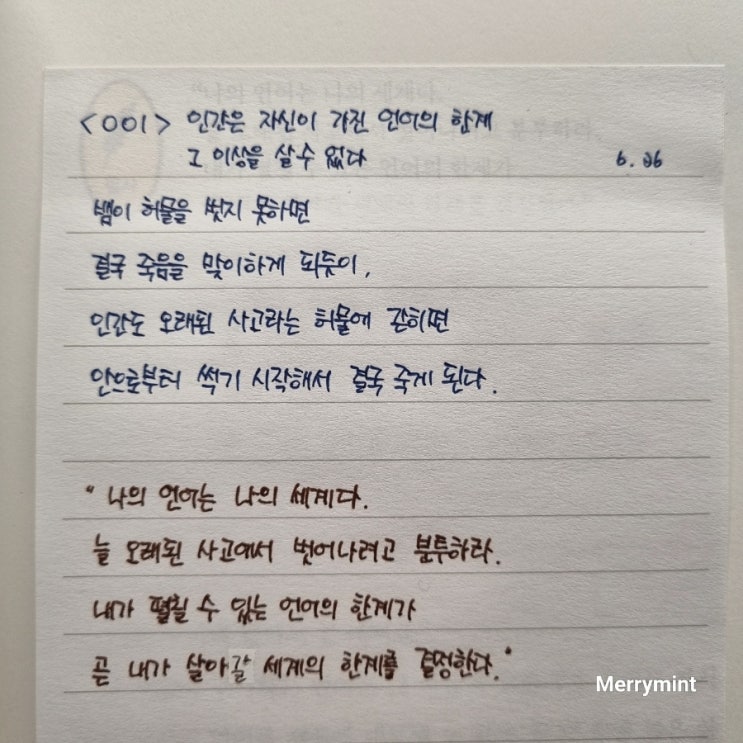 <001> 인간은 자신이 가진 언어의 한계
그 이상을 살 수 없다 6. 26
뱀이 허물을 벗지 못하면
결국 죽음을 맞이하게 되듯이,
인간도 오래된 사고라는 허물에 갇히면
안으로부터 썩기 시작해서 결국 죽게 된다.
"나의 언어는 나의 세계다.
늘 오래된 사고에서 벗어나려고 분투하라.
내가 펼칠 수 있는 언어의 한계가
곧 내가 살아갈 세계의 한계를 결정한다."
Merrymint